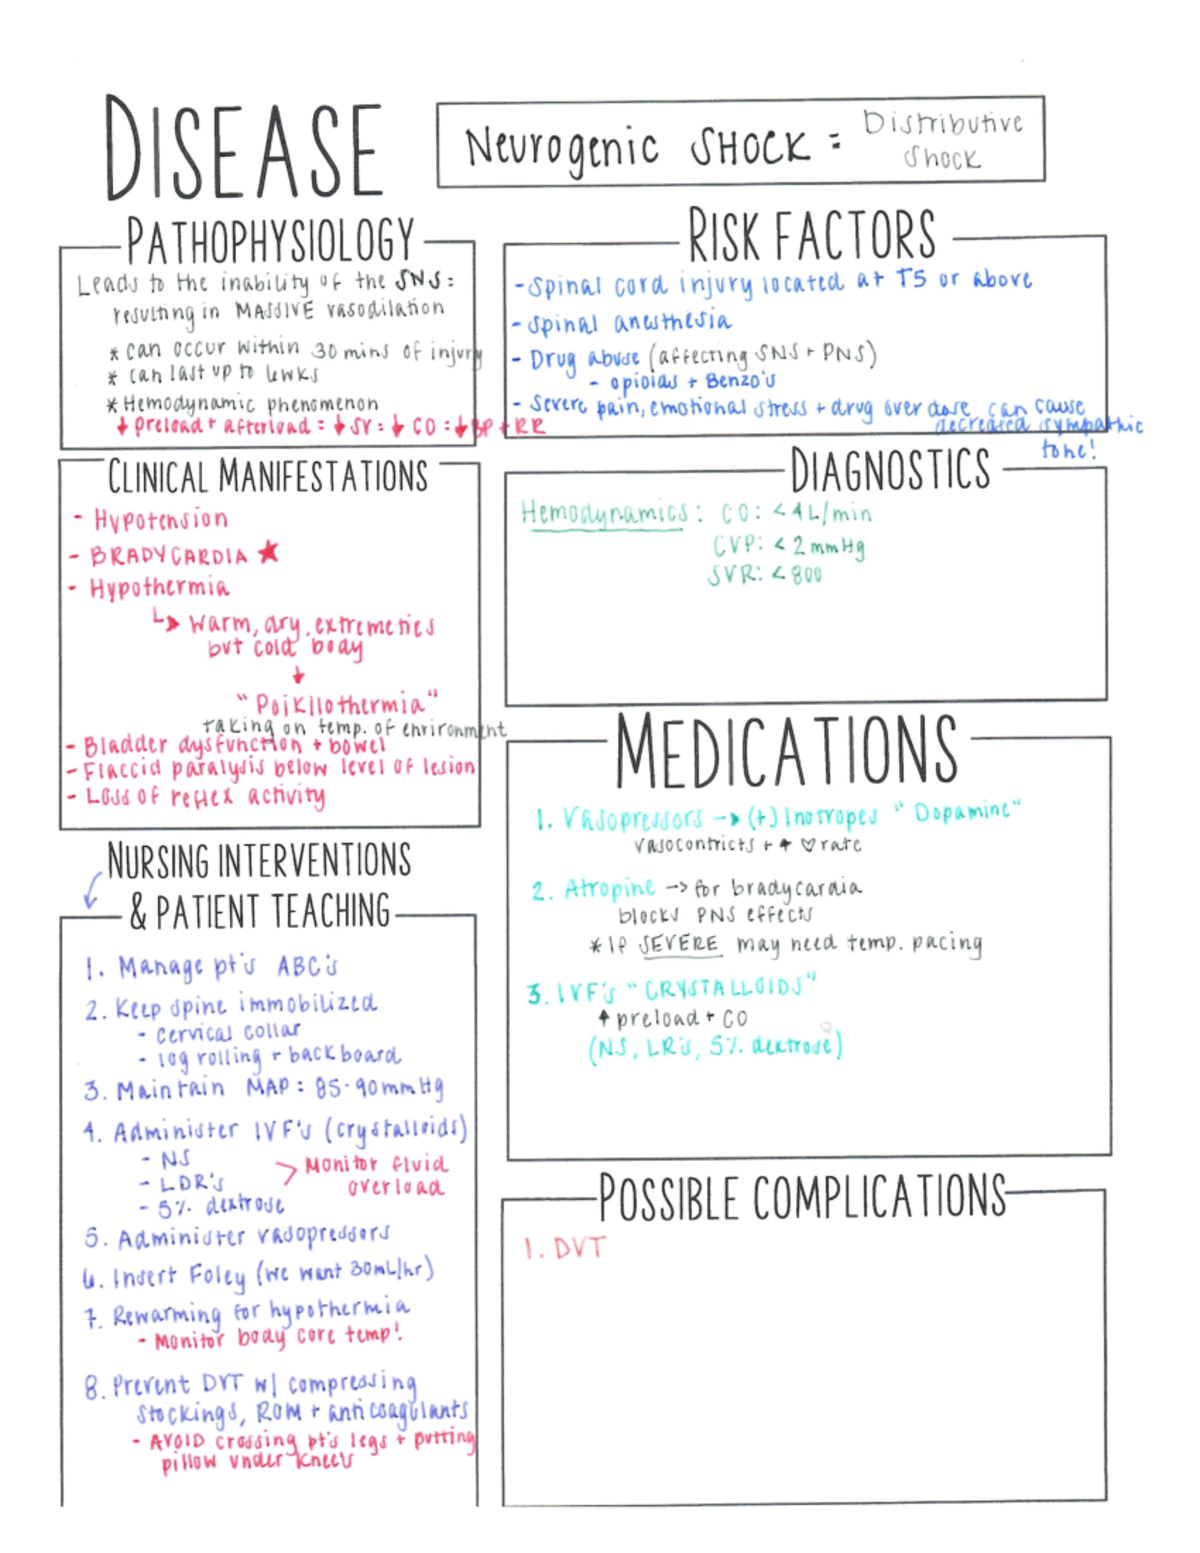 DISEASE
Neurogenic SHOCK = Distributive
Shock
PATHOPHYSIOLOGY
Leads to the inability of the SNS:
resulting in MASSIVE vasodilation
* can occur within 30 mins of injury
* can last up to 6wks
* Hemodynamic phenomenon
↓ preload + afterload = ↓ SV = ↓ CO = ↓ BP + RR
RISK FACTORS
- Spinal cord injury located at T5 or above
- Spinal anesthesia
- Drug abuse (affecting SNS + PNS)
- opioids + Benzo's
- Severe pain, emotional stress + drug over dose can cause
decreased sympathic
tone!
CLINICAL MANIFESTATIONS
- Hypotension
- BRADYCARDIA ★
- Hypothermia
↳ Warm, dry, extremeties
but cold body
↓
"Poikilothermia"
taking on temp. of environment
- Bladder dysfunction + bowel
- Flaccid paralysis below level of lesion
- Loss of reflex activity
DIAGNOSTICS
Hemodynamics: CO: < 4L/min
CVP: < 2 mmHg
SVR: < 800
MEDICATIONS
1. Vasopressors → (+) Inotropes "Dopamine"
vasocontricts + ↑ ♡ rate
2. Atropine → for bradycardia
blocks PNS effects
* If SEVERE may need temp. pacing
3. IVF's "CRYSTALLOIDS"
↑ preload + CO
(NS, LR's, 5% dextrose)
NURSING INTERVENTIONS
& PATIENT TEACHING
1. Manage pt's ABC's
2. Keep spine immobilized
- cervical collar
- log rolling + backboard
3. Maintain MAP: 85-90mmHg
4. Administer IVF's (crystalloids)
- NS
- LDR's
- 5% dextrose
> Monitor fluid
overload
5. Administer vasopressors
6. Insert Foley (we want 30mL/hr)
7. Rewarming for hypothermia
- Monitor body core temp!
8. Prevent DVT w/ compressing
stockings, ROM + anticoagulants
- AVOID crossing pt's legs + putting
pillow under knee's
POSSIBLE COMPLICATIONS
1. DVT